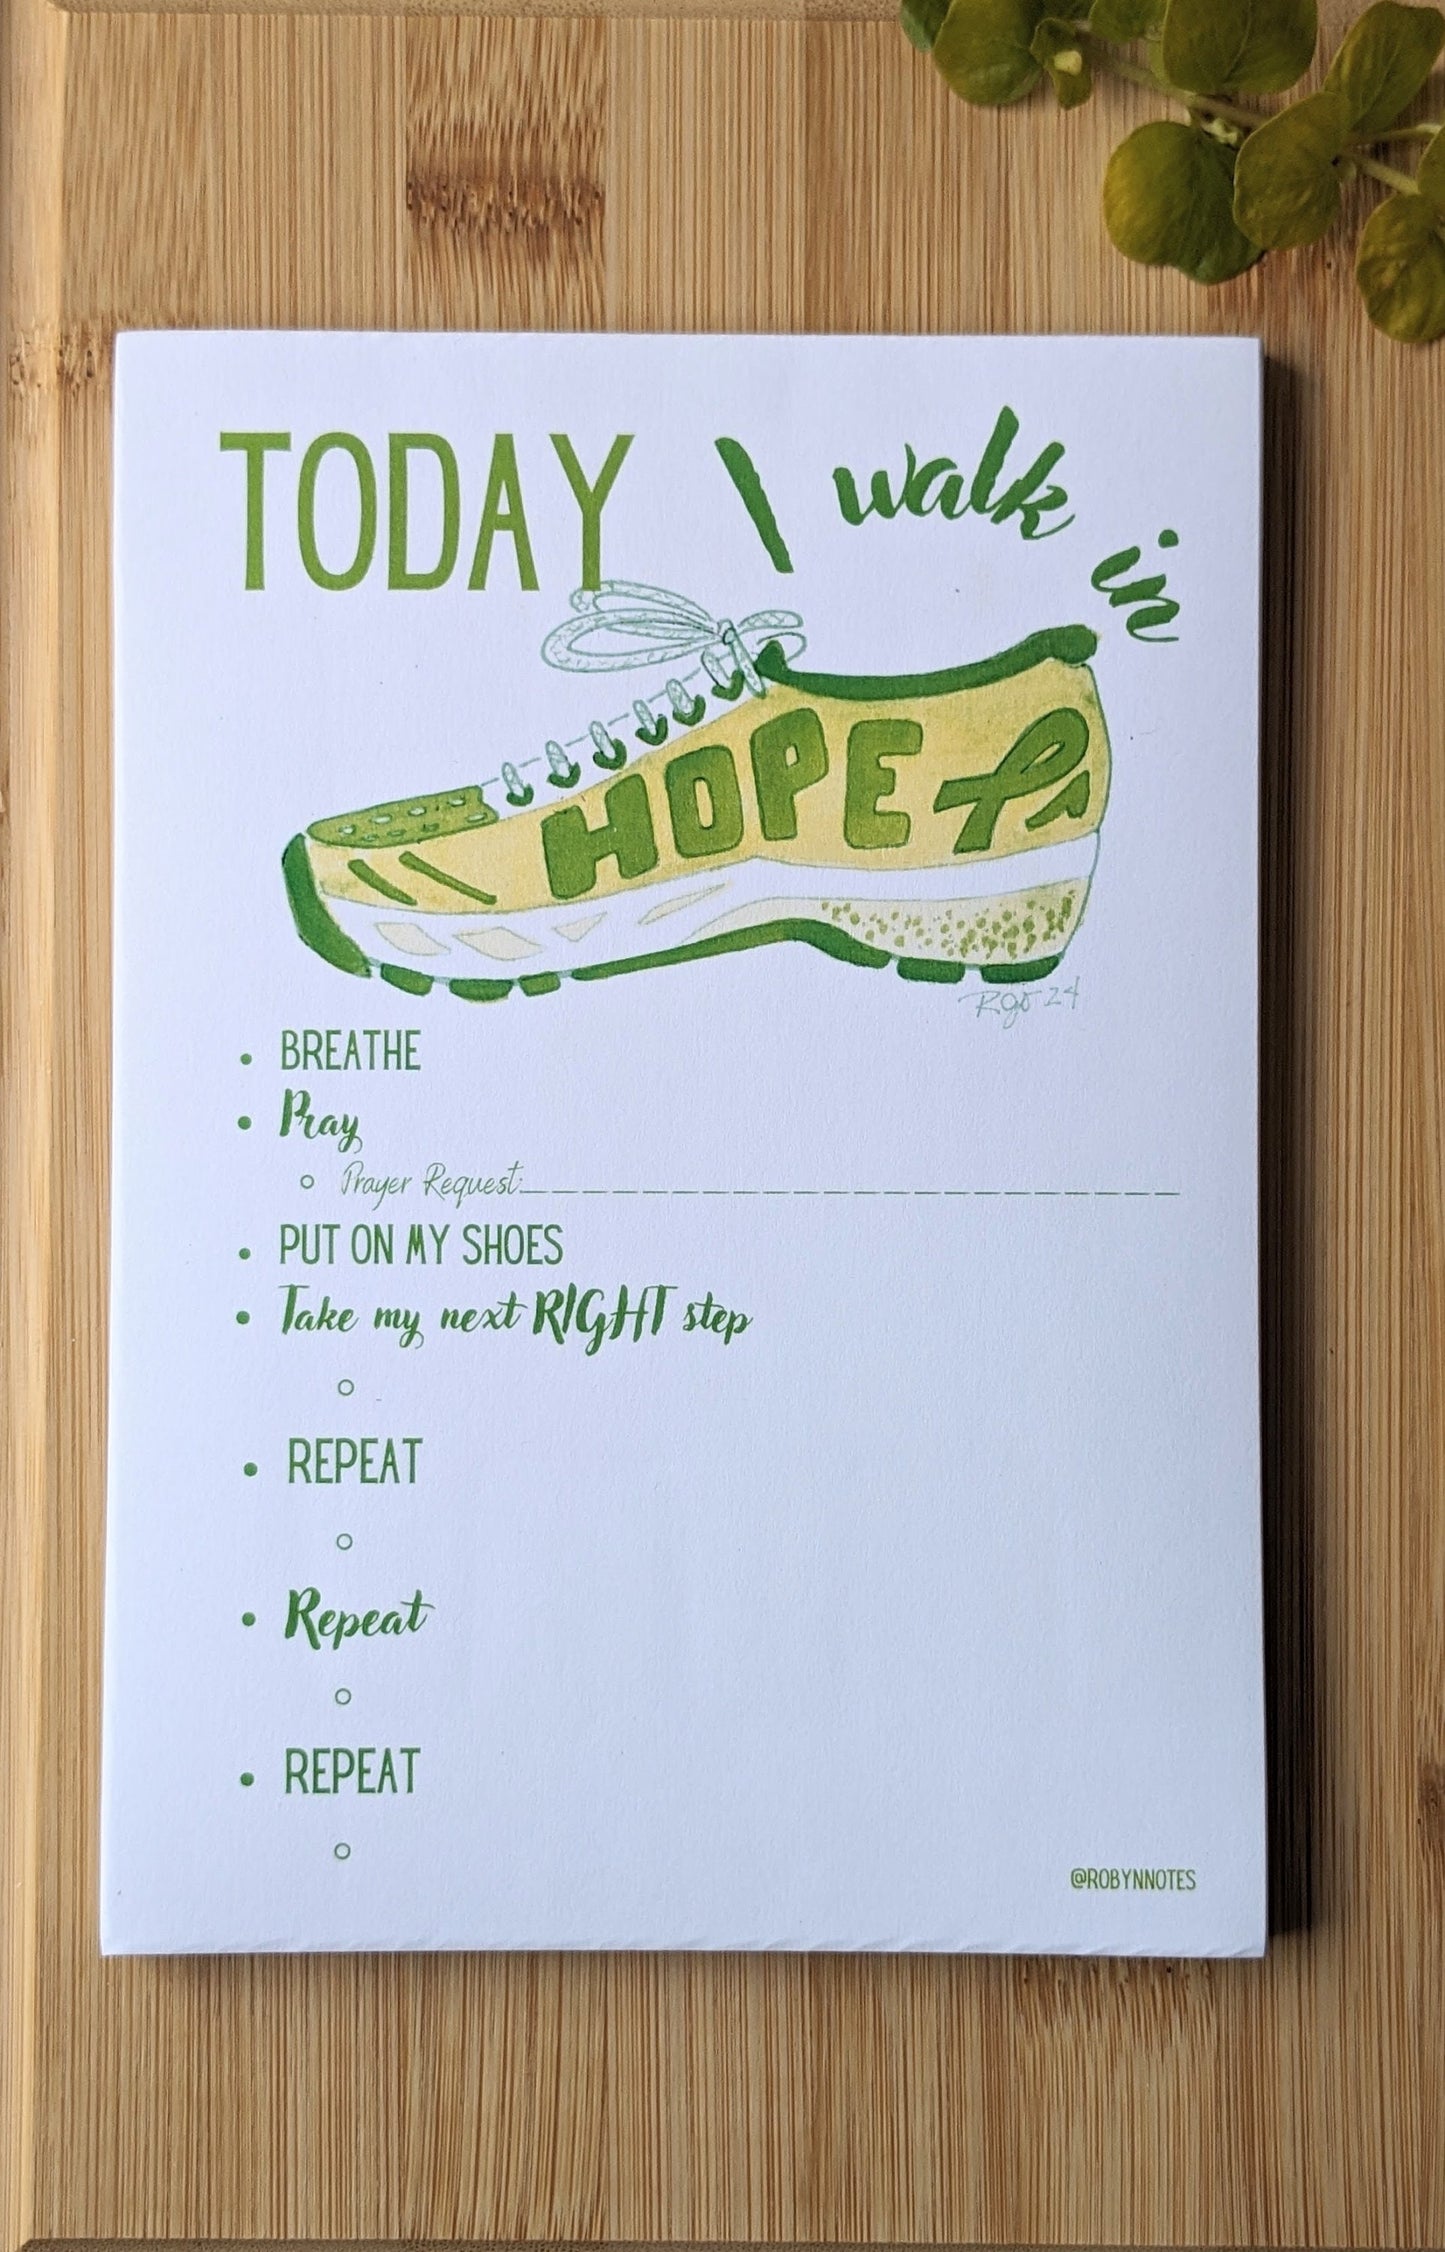 TODAY I walk in
HOPE
Rgo 24
• BREATHE
• Pray
○ Prayer Request:
• PUT ON MY SHOES
• Take my next RIGHT step
• REPEAT
• Repeat
• REPEAT
@ROBYNNOTES